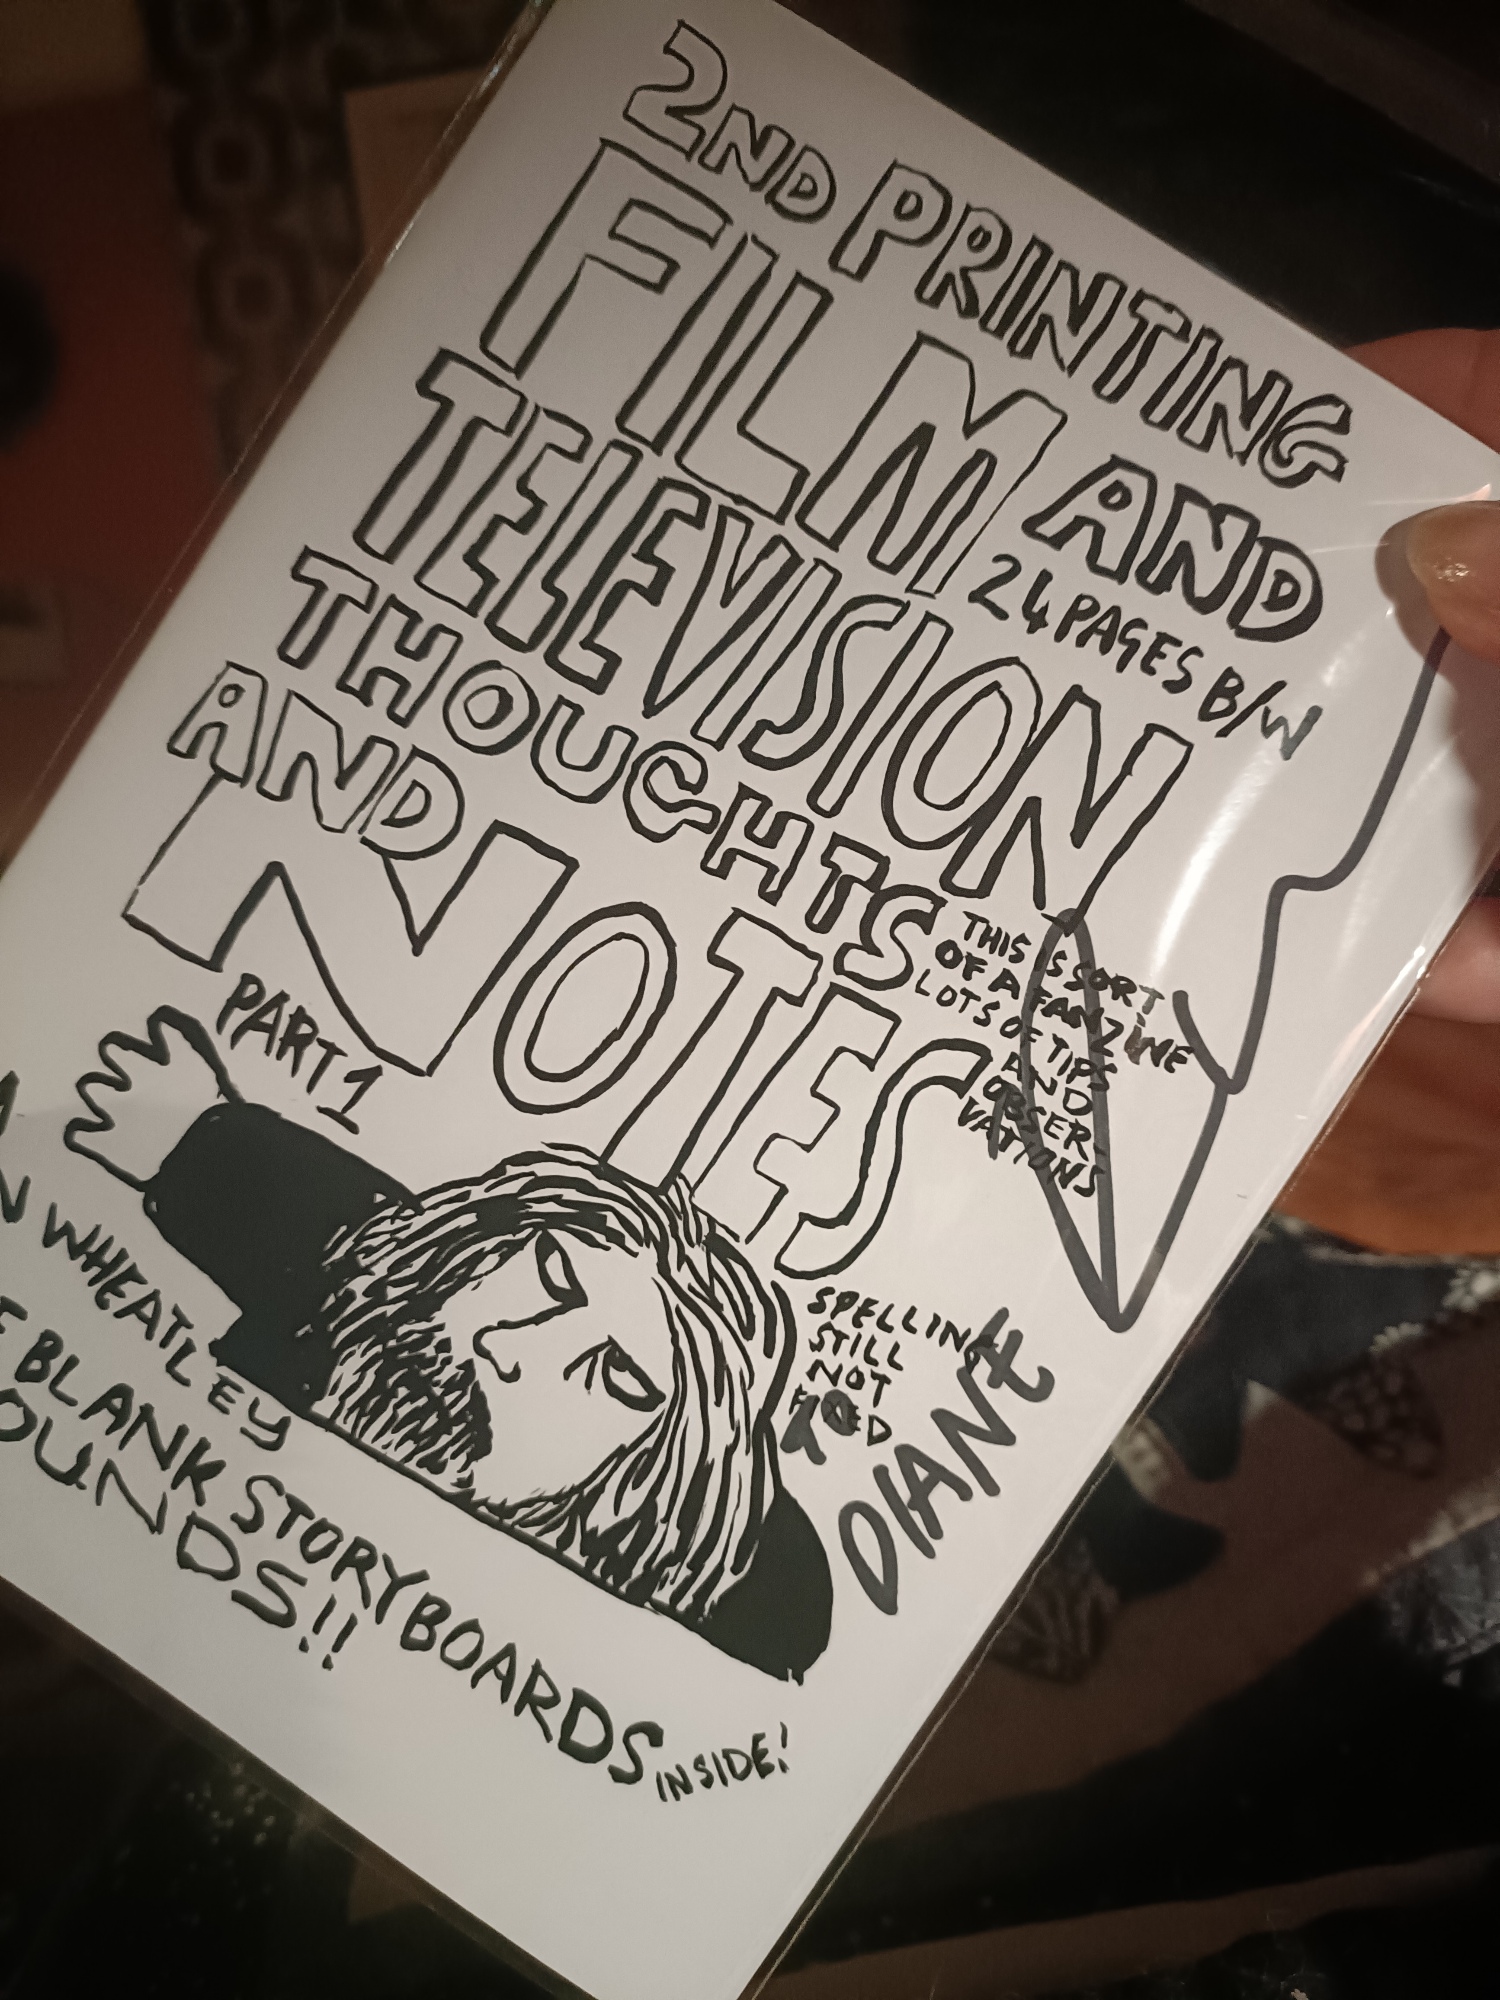 2ND PRINTING
FILM AND
24 PAGES B/W
TELEVISION
THOUGHTS
AND
NOTES
THIS IS SORT
OF A FANZINE
LOTS OF TIPS
AND
OBSER-
VATIONS
PART 1
SPELLING
STILL
NOT
FIXED
TO
DIANE
WHEATLEY
BLANK STORYBOARDS INSIDE!
OUNDS!!